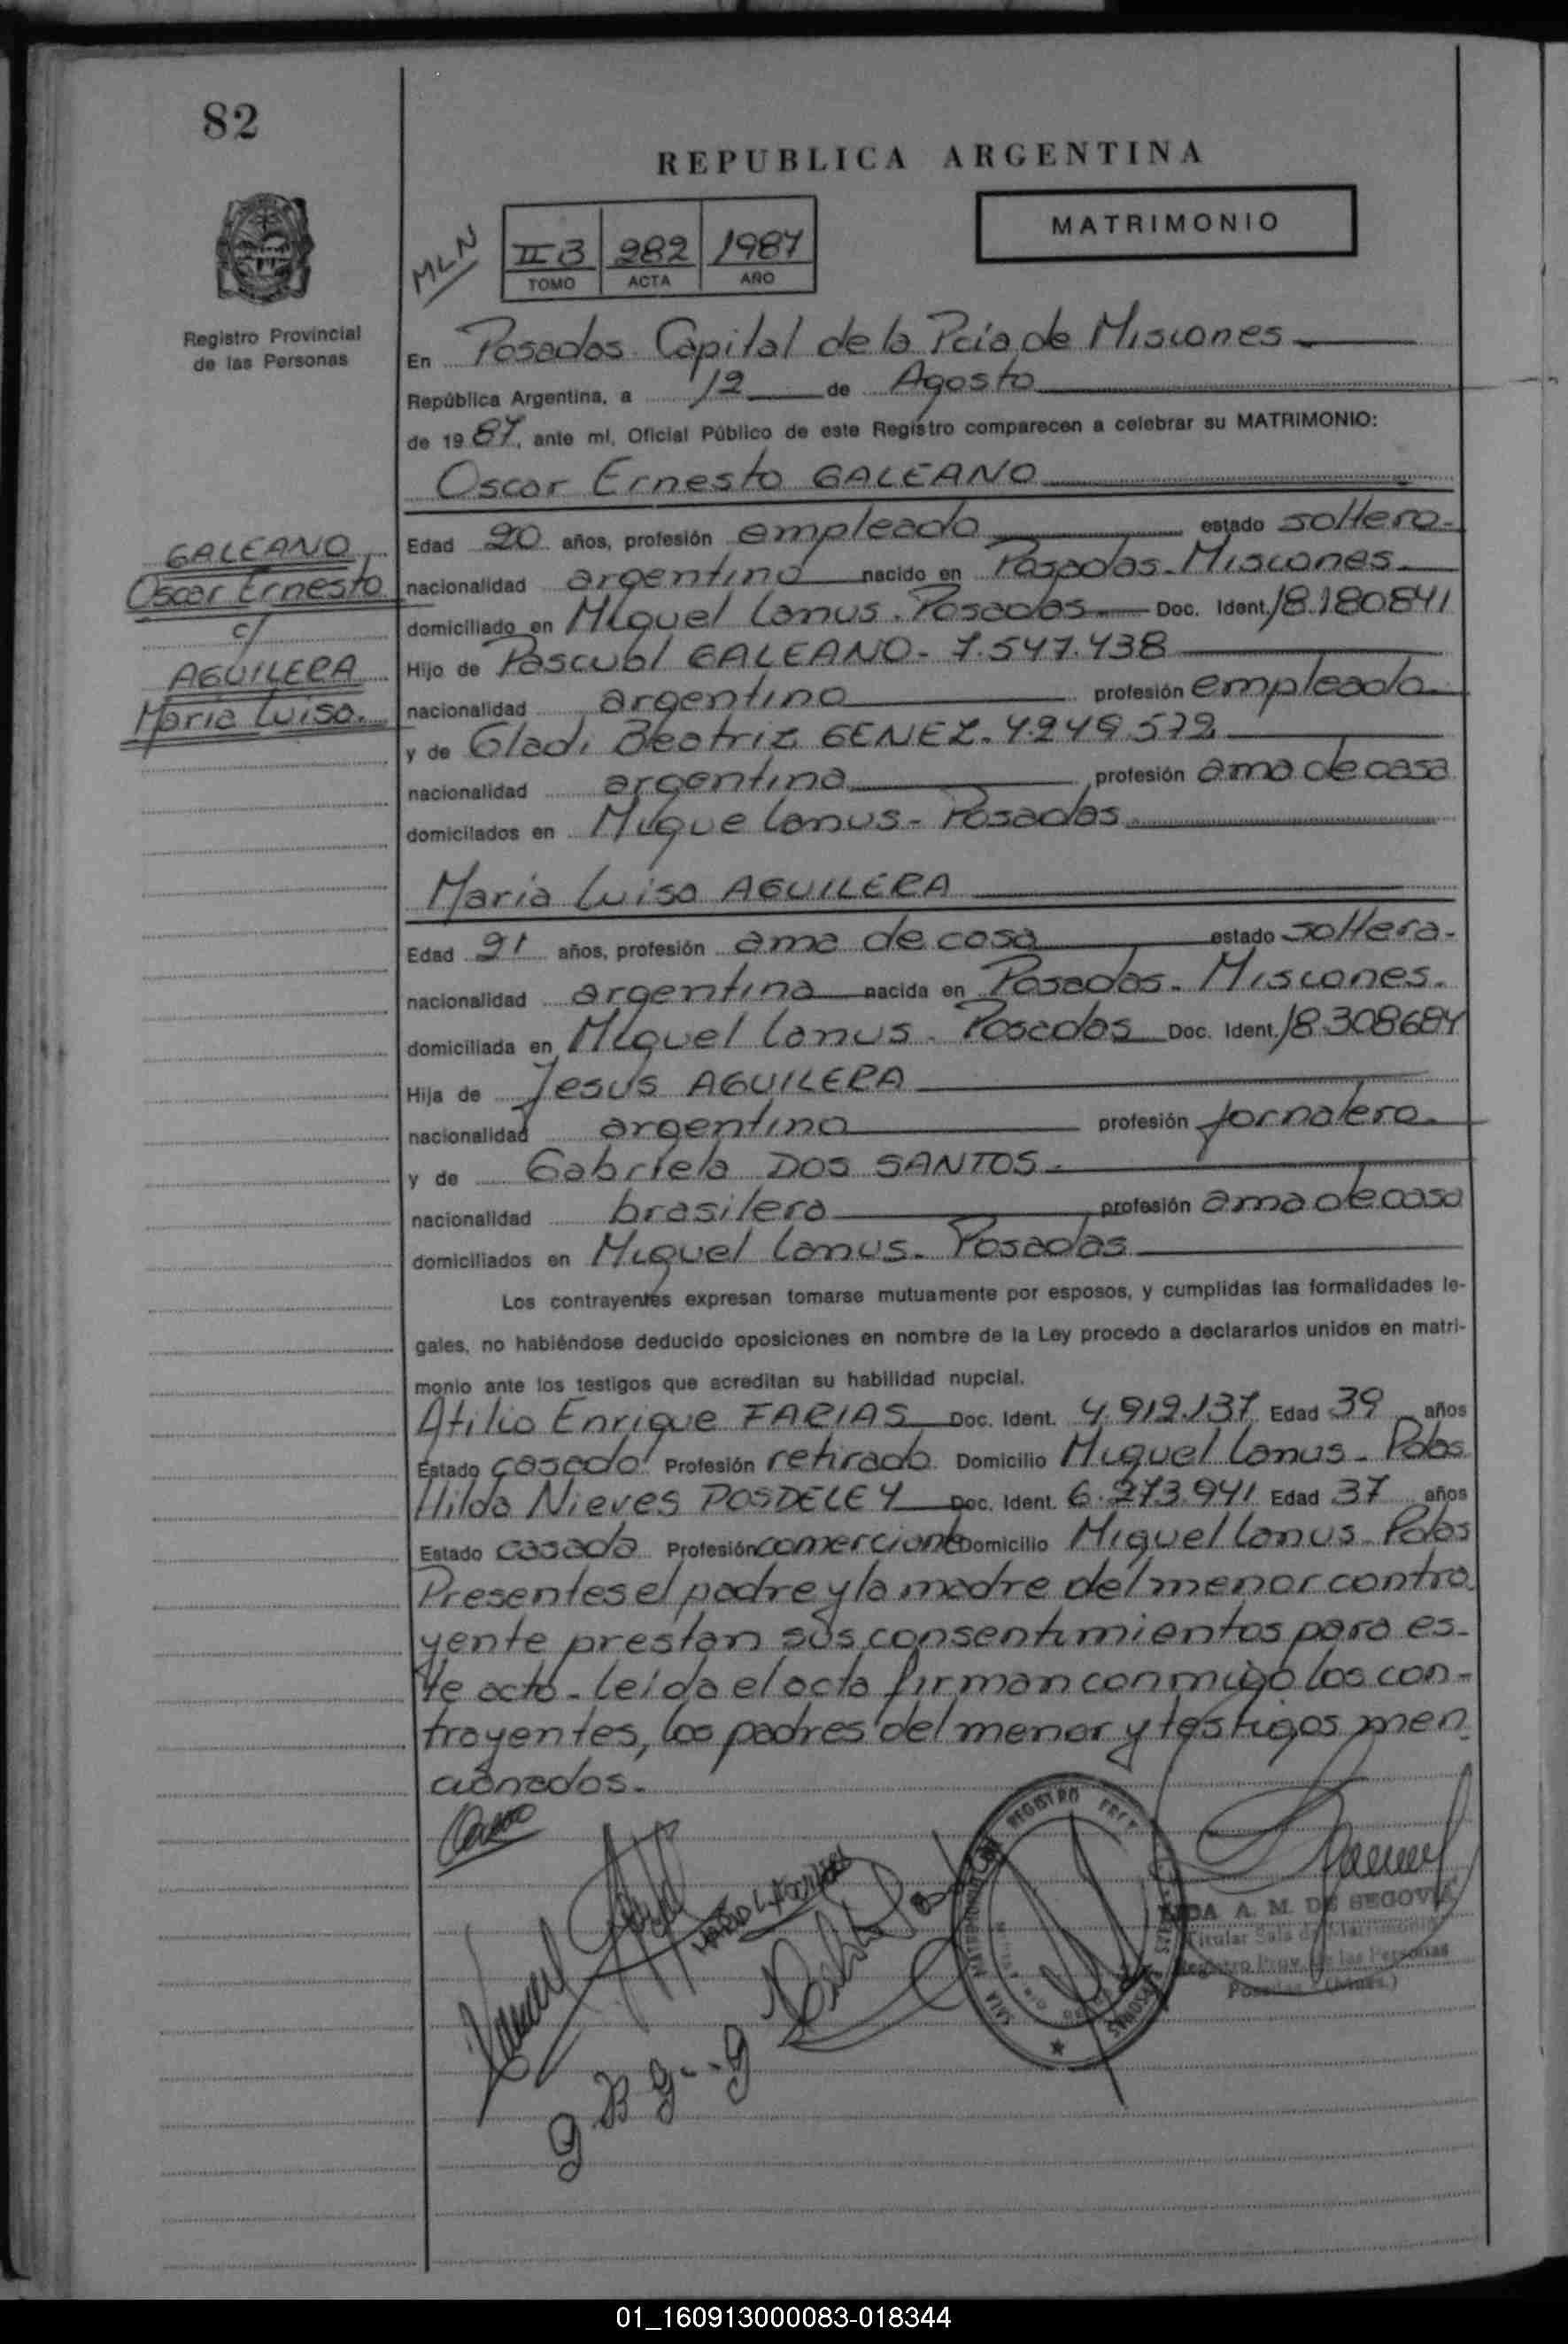 82
REPUBLICA ARGENTINA
MATRIMONIO
MLN
II B 282 1987
TOMO ACTA AÑO
Registro Provincial
de las Personas
En Posadas Capital de la Pcia de Misiones
República Argentina, a 12 de Agosto
de 1987, ante mí, Oficial Público de este Registro comparecen a celebrar su MATRIMONIO:
Oscar Ernesto GALEANO
GALEANO
Oscar Ernesto
c/
AGUILERA
Maria Luisa.
Edad 20 años, profesión empleado estado soltero-
nacionalidad argentino nacido en Posadas-Misiones
domiciliado en Miguel Lanus. Posadas- Doc. Ident. 18.180841
Hijo de Pascual GALEANO- 7.547.438
nacionalidad argentino profesión empleado
y de Gladi Beatriz GENEZ. 4.249.572
nacionalidad argentina profesión ama de casa
domicilados en Migue Lanus- Posadas
Maria Luisa AGUILERA
Edad 21 años, profesión ama de casa estado soltera-
nacionalidad argentina nacida en Posadas. Misiones.
domiciliada en Miguel Lanus. Posadas Doc. Ident. 18308684
Hija de Jesus AGUILERA
nacionalidad argentino profesión jornalero
y de Gabriela DOS SANTOS-
nacionalidad brasilera profesión ama de casa
domiciliados en Miguel Lanus- Posadas
Los contrayentes expresan tomarse mutuamente por esposos, y cumplidas las formalidades le-
gales, no habiéndose deducido oposiciones en nombre de la Ley procedo a declararlos unidos en matri-
monio ante los testigos que acreditan su habilidad nupcial.
Atilio Enrique FARIAS Doc. Ident. 4.919.137 Edad 39 años
Estado casado Profesión retirado Domicilio Miguel Lanus- Pdas
Hilda Nieves POSDELEY Doc. Ident. 6.273.941 Edad 37 años
Estado casada Profesión comerciante Domicilio Miguel Lanus- Pdas
Presentes el padre y la madre del menor contra
yente prestan sus consentimientos para es-
te acto- leida el acta firman conmigo los con-
trayentes, los padres del menor y testigos men
cionados.
SALA MATRIMONIOS REGISTRO
PERSONAS
G B G - g
A. M. DE SEGOVIA
Titular Sala de Matrimonios
Registro Prov. de las Personas
Posadas (Mnes.)
01_160913000083-018344